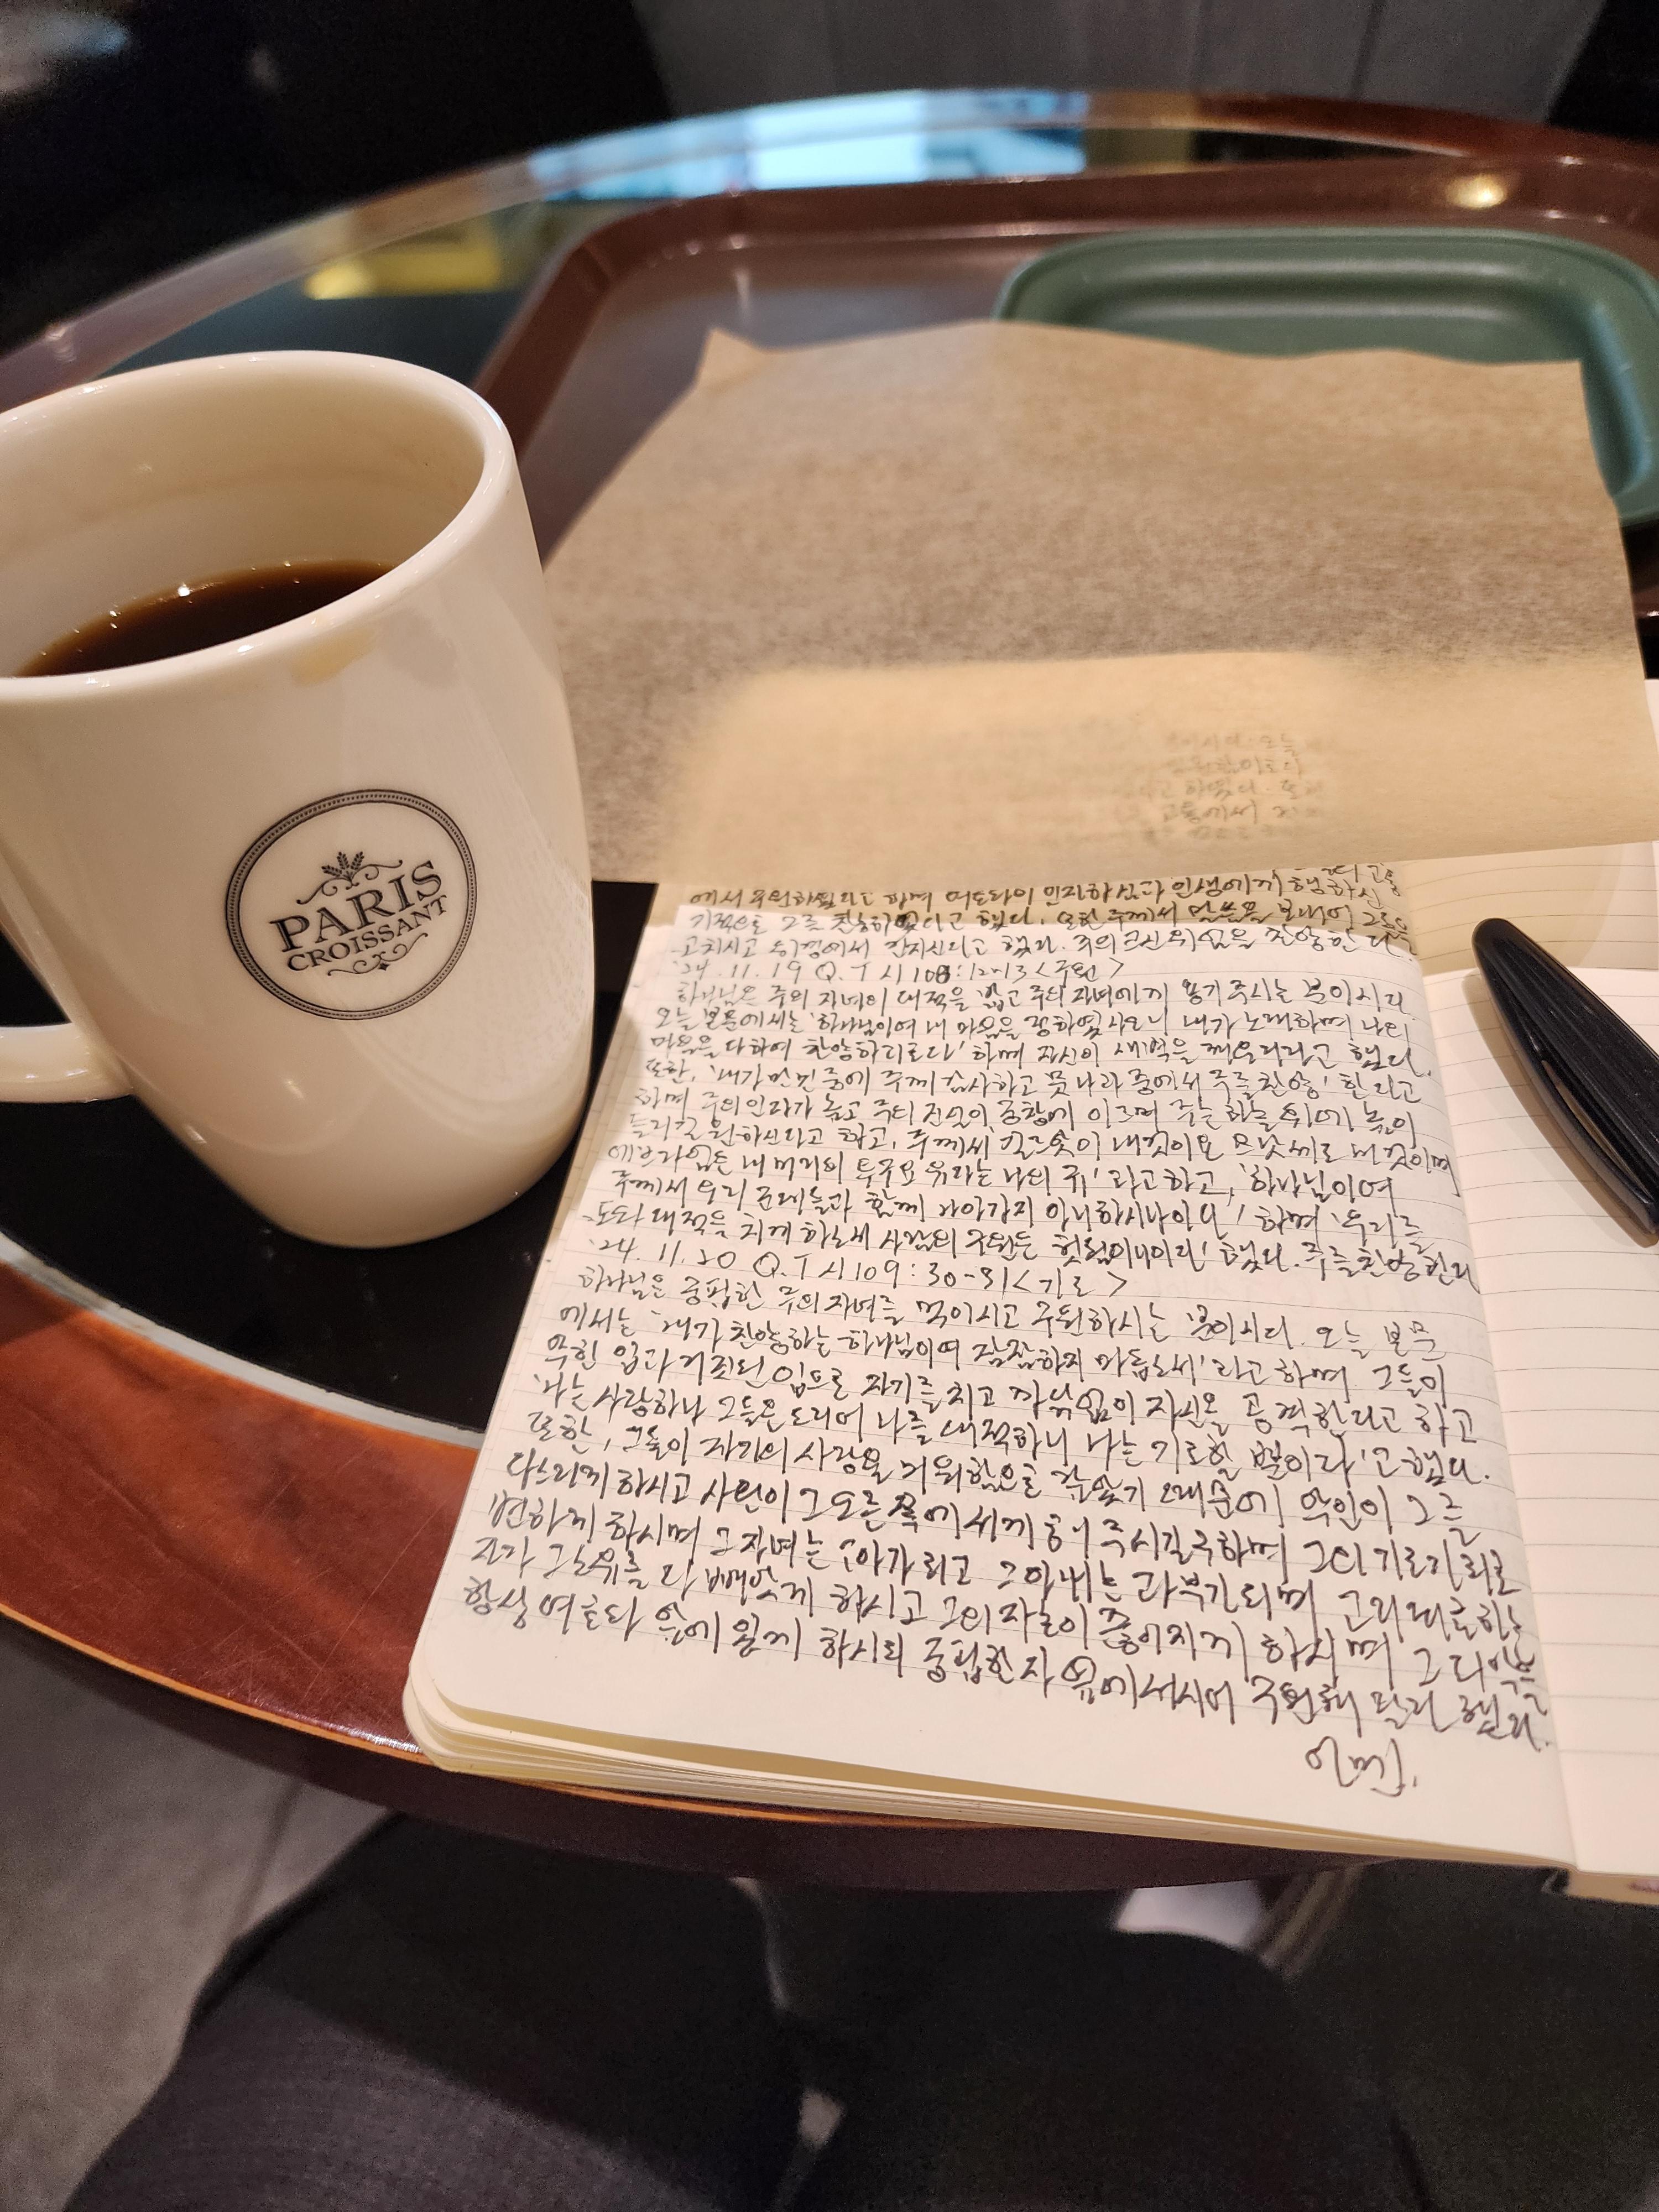 PARIS
CROISSANT
고통에서
에서 구원하셨다고 하며 여호와의 인자하심과 인생에게 행하신
기적으로 그를 찬송하였다고 했다. 또한 주께서 말씀을 보내어 그들을
고치시고 위경에서 건지신다고 했다. 주의 크신 위업을 찬양한다.
'24. 11. 19 Q.T 시 108:12-13 <구원>
하나님은 주의 자녀의 대적을 밟고 주의 자녀에게 용기 주시는 분이시다.
오늘 본문에서는 '하나님이여 내 마음을 정하였사오니 내가 노래하며 나의
마음을 다하여 찬양하리로다' 하며 자신이 새벽을 깨우리라고 했다.
또한, '내가 만민 중에 주께 감사하고 뭇 나라 중에서 주를 찬양' 한다고
하며 주의 인자가 높고 주의 진실이 궁창에 이르며 주는 하늘 위에 높이
들리길 원하신다고 하고, 주께서 '길르앗이 내 것이요 므낫세도 내 것이며
에브라임은 내 머리의 투구요 유다는 나의 규' 라고 하고, '하나님이여
주께서 우리 군대들과 함께 나아가지 아니하시나이다' 하며 '우리를
도와 대적을 치게 하소서 사람의 구원은 헛됨이니이다' 했다. 주를 찬양한다
'24. 11. 20 Q.T 시 109:30-31 <기도>
하나님은 궁핍한 주의 자녀를 먹이시고 구원하시는 분이시다. 오늘 본문
에서는 '내가 찬양하는 하나님이여 잠잠하지 마옵소서' 라고 하며 그들이
악한 입과 거짓된 입으로 자기를 치고 까닭 없이 자신을 공격한다고 하고
'나는 사랑하나 그들은 도리어 나를 대적하니 나는 기도할 뿐이라' 고 했다.
또한, 그들이 자기의 사랑을 거워함으로 갚았기 때문에 악인이 그를
다스리게 하시고 사탄이 그 오른쪽에 서게 하여 주시길 구하며 그의 기도가 죄로
변하게 하시며 그 자녀는 고아가 되고 그 아내는 과부가 되며 고리대금하는
자가 그 소유를 다 빼앗게 하시고 그의 자손이 끊어지게 하시며 그 죄악을
항상 여호와 앞에 있게 하시되 궁핍한 자 옆에 서시어 구원해 달라 했다.
아멘.